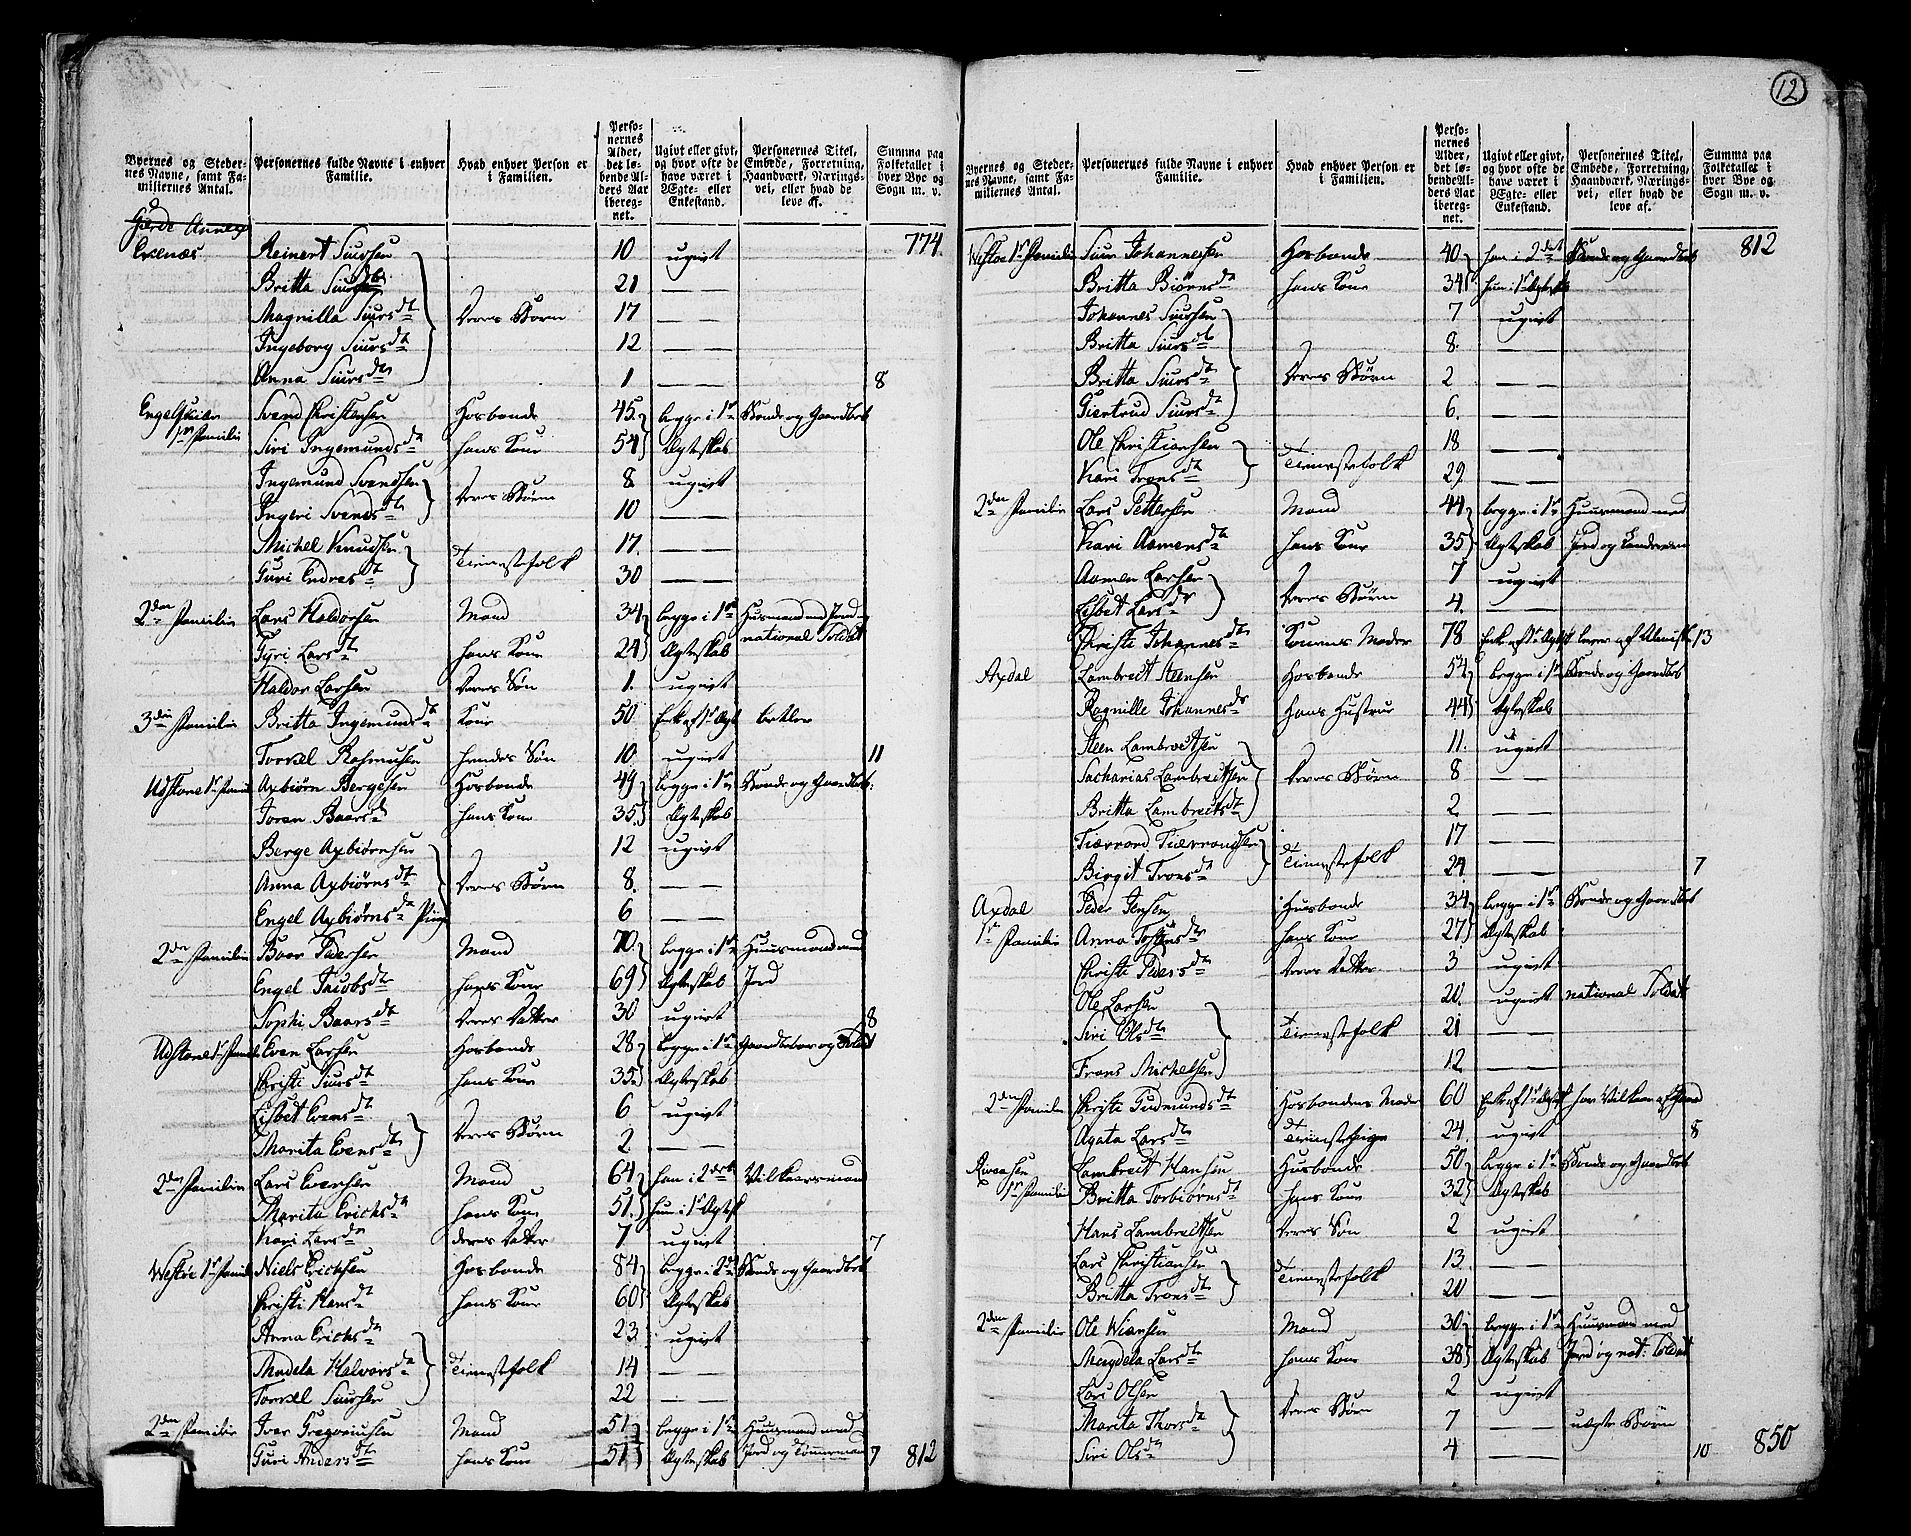 12
Byernes og Stedernes Navne, samt Familiernes Antal. | Personernes fulde Navne i enhver Familie. | Hvad enhver Person er i Familien. | Personernes Alder, det løbende Alders Aar iberegnet. | Ugivt eller givt, og hvor ofte de have været i Ægte- eller Enkestand. | Personernes Titel, Embede, Forretning, Haandværk, Næringsvei, eller hvad de leve af. | Summa paa Folketallet i hver Bye og Sogn m. v.
Gierde Annex
Evenæs | Reinert Siursen | 10 | ugivt | 774
Britta Siursdtr | 21 | — —
Magnilla Siursdt | deres Børn | 17 | — —
Ingeborg Siursdt | 12 | — —
Anna Siursdtr | 1 | — — | 8
Svend Christensen | Hosbonde | 45 | begge i 1ste | Bonde og Gaardbeb
1ste Familie | Siri Ingemundsdt | hans Kone | 54 | Ægteskab
Ingemund Svendsen | 8 | ugivt
Ingeri Svendsdt | deres Børn | 10 | — —
Michel Knudsen | 17 | — —
Guri Endresdt | Tienestefolk | 30 | — —
2den Familie | Lars Haldorsen | Mand | 34 | begge i 1ste | Huusmand med Jord og
Gyri Larsdt | hans Kone | 24 | Ægteskab | national Soldat
Haldor Larsen | deres Søn | 1 | ugivt
3die Familie | Britta Ingemundsdt | Kone | 50 | Enke eft 1st Ægt | betler
Torkel Rasmusen | hendes Søn | 10 | ugivt | 11
1ste Famil | Axbiørn Bergesen | Hosbonde | 49 | begge i 1ste | Bonde og Gaardbeb:
Joren Baarsd | hans Kone | 35 | Ægteskab
Berge Axbiørnsen | 12 | ugivt
Anna Axbiørnsdt | deres Børn | 8 | — —
Engel Axbiørnsdt | 6 | — —
2den Familie | Baar Pedersen | Mand | 70 | begge i 1ste | Huusmand med
Engel Jacobsdt | hans Kone | 69 | Ægteskab | Jord
Sophi Baarsdt | deres Datter | 30 | ugivt | 8
1ste Famil | Even Larsen | Hosbonde | 28 | begge i 1ste | Gaardbeboer og Soldat
Christi Siursdt | hans Kone | 35 | Ægteskab
Lisbet Evensdt | 6 | ugivt
Marita Evensdtr | deres Børn | 2 | — —
2den Familie | Lars Evensen | Mand | 64 | han i 2det | Vilkaarsmand
Marita Erichsdt | hans Kone | 51 | hun i 1st Ægtesk
Kari Larsdtr | deres Datter | 7 | ugivt | 7
1ste Famil | Niels Erichsen | Hosbonde | 84 | begge i 2det | Bonde og Gaardbeb
Christi Hansdt | hans Kone | 60 | Ægteskab
Anna Erichsdt | 23 | ugivt
Madela Halvorsdt | Tienestefolk | 14 | — —
Torkel Siursen | 22 | — —
2den Familie | Iver Gregoriusen | Mand | 51 | begge i 1ste | Huusmand med
Guri Andersdt | hans Kone | 51 | Ægteskab | Jord og Tømmermand | 7 | 812
Byernes og Stedernes Navne, samt Familiernes Antal. | Personernes fulde Navne i enhver Familie. | Hvad enhver Person er i Familien. | Personernes Alder, det løbende Alders Aar iberegnet. | Ugivt eller givt, og hvor ofte de have været i Ægte- eller Enkestand. | Personernes Titel, Embede, Forretning, Haandværk, Næringsvei, eller hvad de leve af. | Summa paa Folketallet i hver Bye og Sogn m. v.
1ste Familie | Siur Johannesen | Hosbonde | 40 | han i 2det | Bonde og Gaardbeb | 812
Britta Biørnsdt | hans Kone | 34 | hun i 1st Ægtesk
Johannes Siursen | 7 | ugivt
Britta Siursdt | 8 | — —
Britta Siursdt | deres Børn | 2 | — —
Giertrud Siursdt | 6 | — —
Ole Christiansen | 18 | — —
Kari Tronsdt | Tienestefolk | 29 | — —
2den Familie | Lars Pettersen | Mand | 44 | begge i 1ste | Huusmand med
Kari Aamensdt | hans Kone | 35 | Ægteskab | Jord og
Aamen Larsen | 7 | ugivt
Lisbet Larsdtr | deres Børn | 4 | — —
Christi Johannesdtr | Konens Moder | 78 | Enke eft 1st Ægt | lever af Almisse | 13
Axdal | Lambrect Steensen | Hosbonde | 54 | begge i 1ste | Bonde og Gaardbeb
Ragnille Johannesdr | hans Hustrue | 44 | Ægteskab
Steen Lambrectsen | 11 | ugivt
Sacharias Lambrectsen | deres Børn | 8 | — —
Britta Lambrectsdt | 2 | — —
17 | — —
Birgit Tronsdt | Tienestefolk | 24 | — — | 7
Axdal | Peder Jensen | Huusbonde | 34 | begge i 1ste | Bonde og Gaardbeb
1ste Familie | Anna | hans Kone | 27 | Ægteskab
Christi Pedersdt | deres Datter | 3 | ugivt
Ole Larsen | 20 | ugivt | national Soldat
Siri Olsdtr | Tienestefolk | 21 | — —
Frans Michelsen | 12 | — —
2den Familie | Christi Gudmundsdt | Hosbondens Moder | 60 | Enke eft 1st Ægtesk | har Vilkaar af Gaard
Agata Larsdt | Tienestepige | 24 | ugivt | 8
1ste Familie | Lambrect Hansen | Huusbonde | 50 | begge i 1ste | Bonde og Gaardbeb
Britta Torbiørnsdt | hans Kone | 32 | Ægteskab
Hans Lambrectsen | deres Søn | 2 | ugivt
Lars Christiansen | 13 | — —
Britta Tronsdt | Tienestefolk | 20 | — —
2den Familie | Ole | Mand | 30 | begge i 1ste | Huusmand med
Magdela Larsdtr | hans Kone | 38 | Ægteskab | Jord og nat: Soldat
Lars Olsen | 2 | ugivt
Marita Thorsdt | deres Børn | 7 | — — | uægte Børn
Siri Olsdtr | 4 | — — | 10 | 850